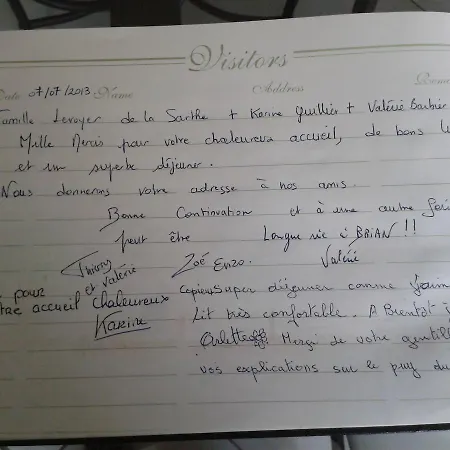 Visitors
Date 07/07/2013. Name Address
Famille Leroyer de la Sarthe + Karine + Valérie Barbier
Mille Mercis pour votre chaleureux accueil, de bons
et un superbe déjeuner.
Nous donnerons votre adresse à nos amis.
Bonne Continuation et à une autre
peut être Longue vie à BRIAN !!
Thierry et Valérie Zoé Enzo. Valérie
pour accueil chaleureux
Karine
Super déjeuner comme
Lit très confortable. A Bientôt
Merci de votre
vos explications sur le puy du